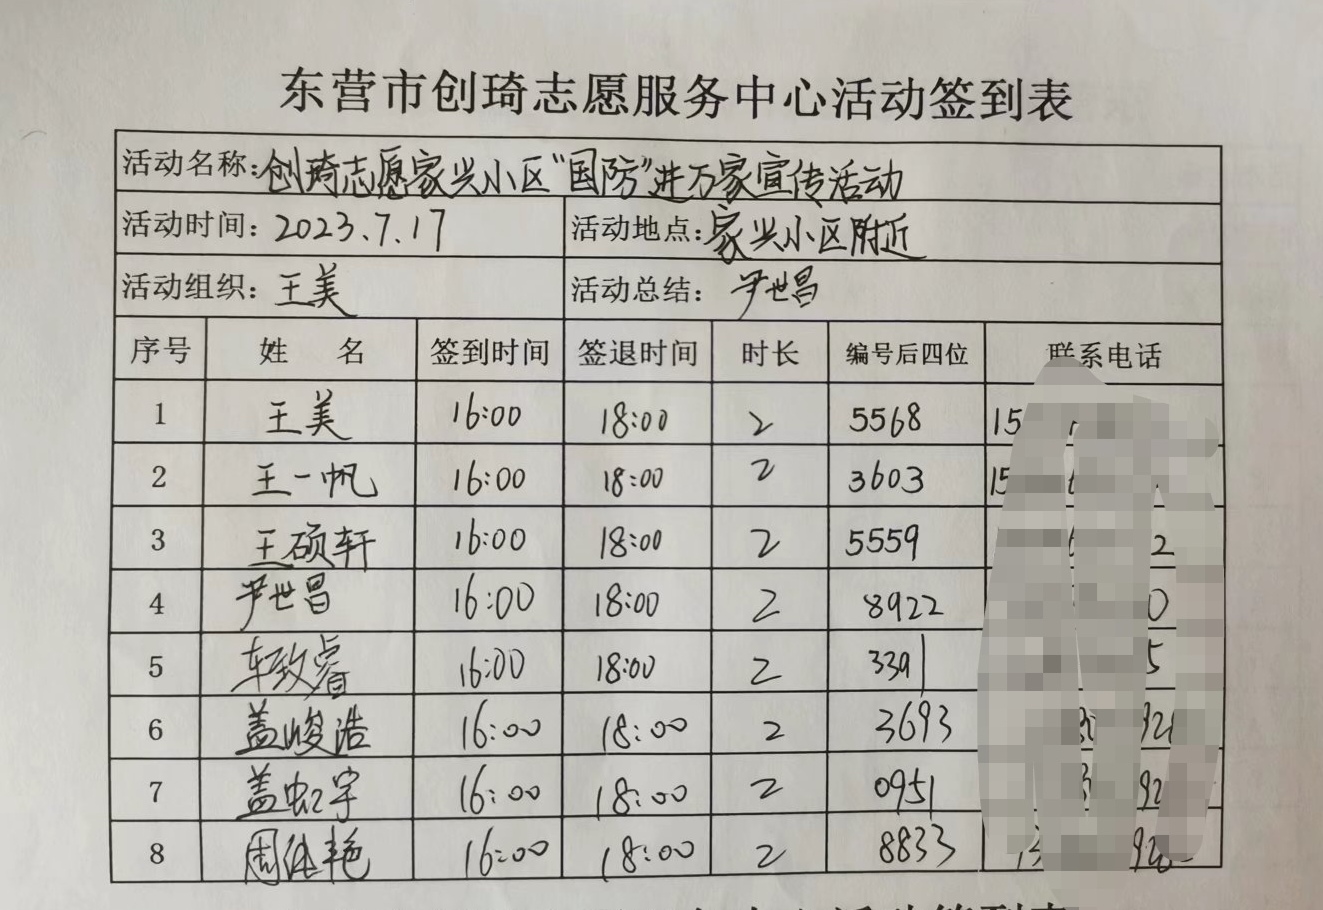 东营市创琦志愿服务中心活动签到表
活动名称:创琦志愿家兴小区“国防”进万家宣传活动
活动时间: 2023.7.17 活动地点:家兴小区附近
活动组织: 王美 活动总结: 尹世昌
序号 姓 名 签到时间 签退时间 时长 编号后四位 联系电话
1 王美 16:00 18:00 2 5568 15
2 王一帆 16:00 18:00 2 3603 15
3 王硕轩 16:00 18:00 2 5559 2
4 尹世昌 16:00 18:00 2 8922 0
5 车致睿 16:00 18:00 2 3391 5
6 盖峻浩 16:00 18:00 2 3693
7 盖虹宇 16:00 18:00 2 0951
8 周 艳 16:00 18:00 2 8833